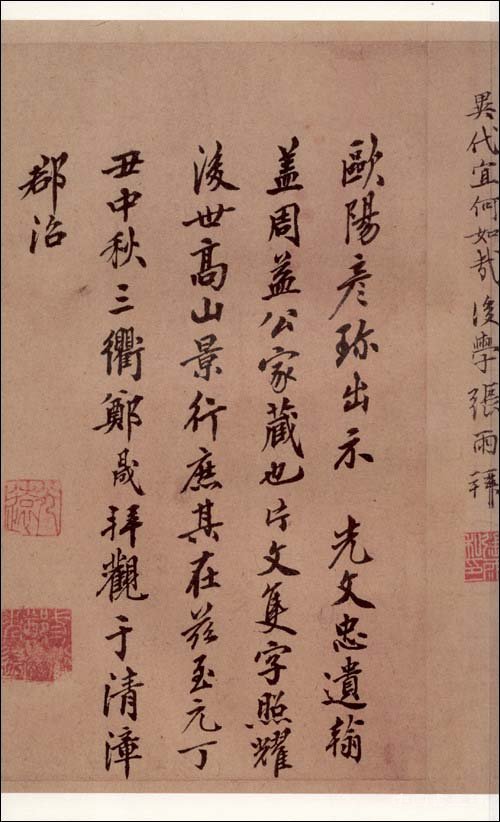 異代宜何如哉後學張雨拜
歐陽彥珍出示 先文忠遺翰
蓋周益公家藏也片文隻字照耀
後世高山景行庶其在茲至元丁
丑中秋三衢鄭晟拜觀于清漳
郡治